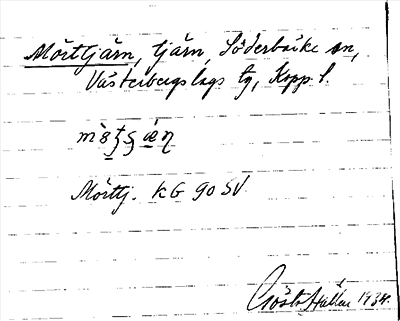 Mörttjärn, tjärn, Söderbärke sn,
Västerbergslags tg, Kopp. l.
Mörttj. KG 90 SV
Gösta 1934.